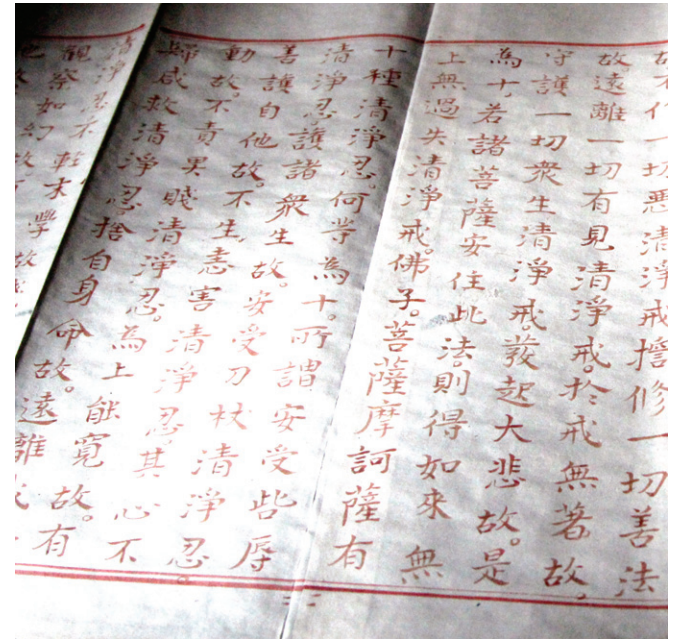 故不作一切惡清淨戒擔修一切善法
故遠離一切有見清淨戒。於戒無著故。
守護一切衆生清淨戒。發起大悲故。是
為十。若諸菩薩安住此法。則得如來無
上無過失清淨戒。佛子。菩薩摩訶薩有
十種清淨忍。何等為十。所謂安受呰辱
清淨忍護諸衆生故。安受刀杖清淨忍。
善護自他故。不生恚害清淨忍。其心不
動故。不責卑賤清淨忍。為上能寬故。有
歸咸救清淨忍。捨自身命故。遠離
清淨忍不輕末學故
觀察如幻故